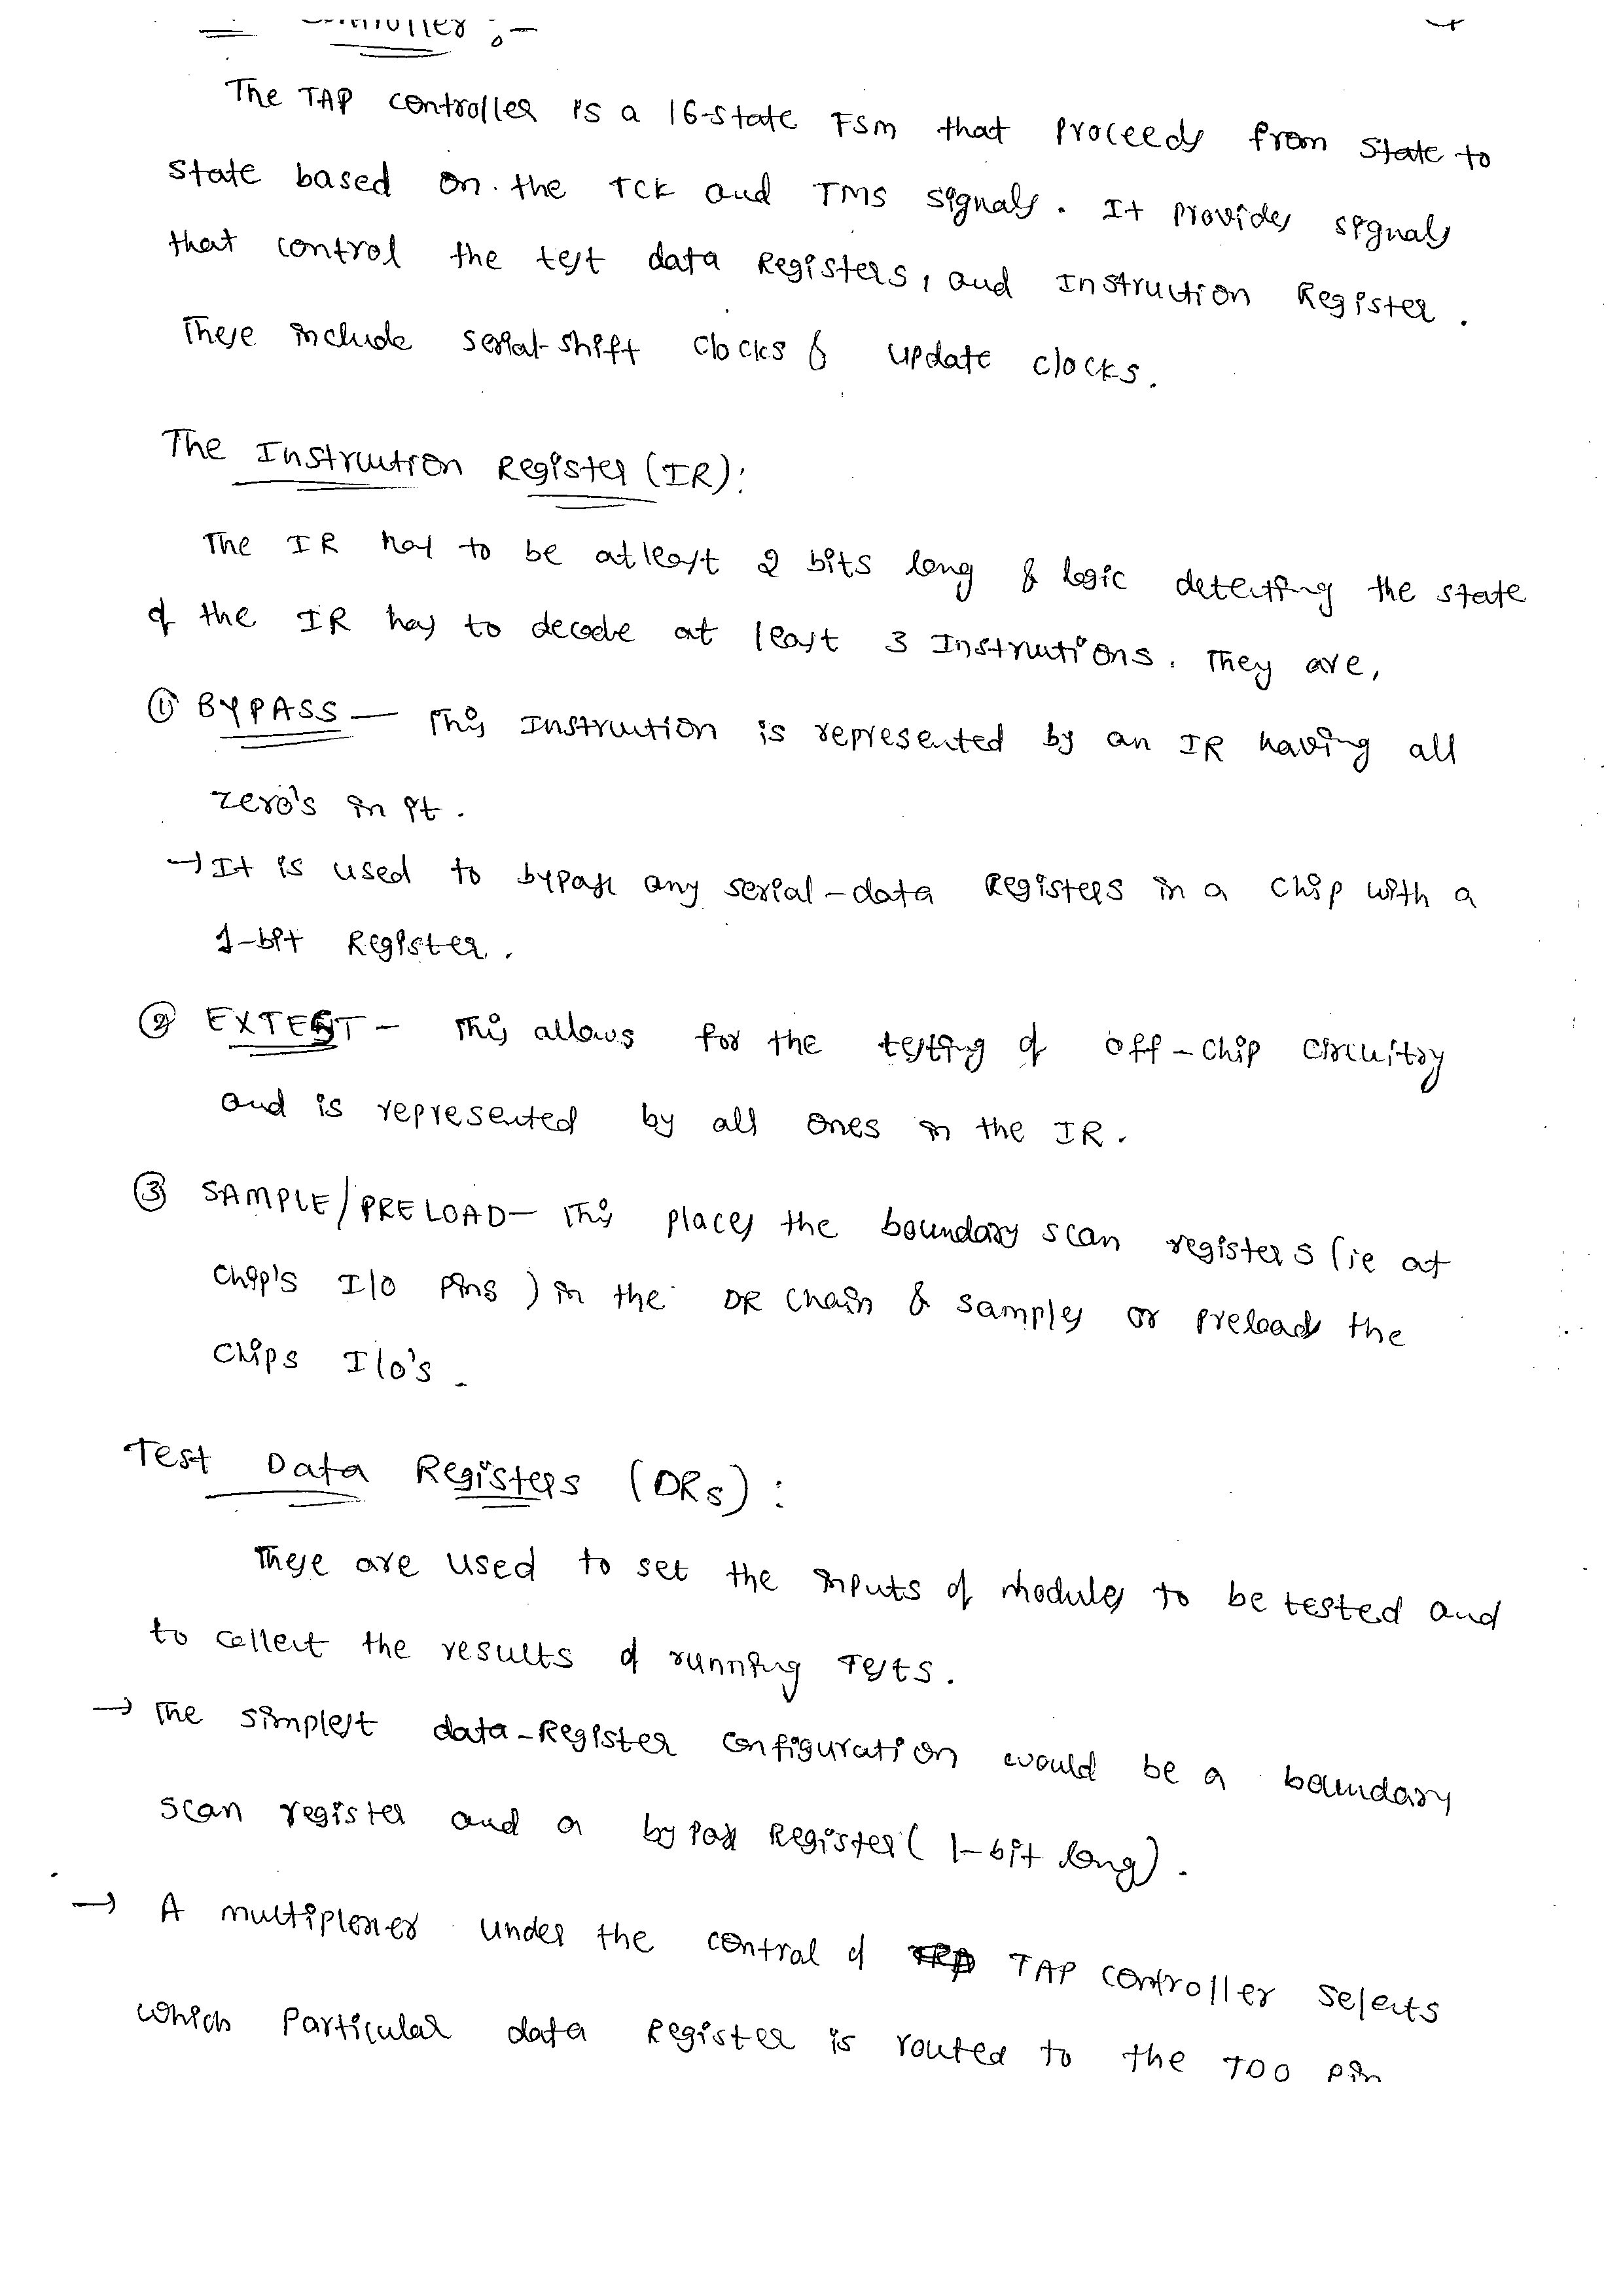 Controller :-
The TAP controller is a 16-state FSM that proceeds from state to
state based on the TCK and TMS signals. It provides signals
that control the test data Registers, and Instruction Register.
These include serial-shift clocks & update clocks.
The Instruction Register (IR):
The IR has to be atleast 2 bits long & logic detecting the state
of the IR has to decode at least 3 Instructions. They are,
① BYPASS — This Instruction is represented by an IR having all
zero's in it.
→ It is used to bypass any serial-data Registers in a chip with a
1-bit Register.
② EXTEST - This allows for the testing of off-chip circuitry
and is represented by all ones in the IR.
③ SAMPLE/PRELOAD - This places the boundary scan registers (ie at
chip's I/O pins) in the DR chain & samples or preloads the
chips I/O's.
Test Data Registers (DRs):
These are used to set the inputs of modules to be tested and
to collect the results of running Tests.
→ The simplest data-Register configuration would be a boundary
scan register and a bypass Register (1-bit long).
→ A multiplexer under the control of TAP controller selects
which particular data Register is routed to the TDO pin